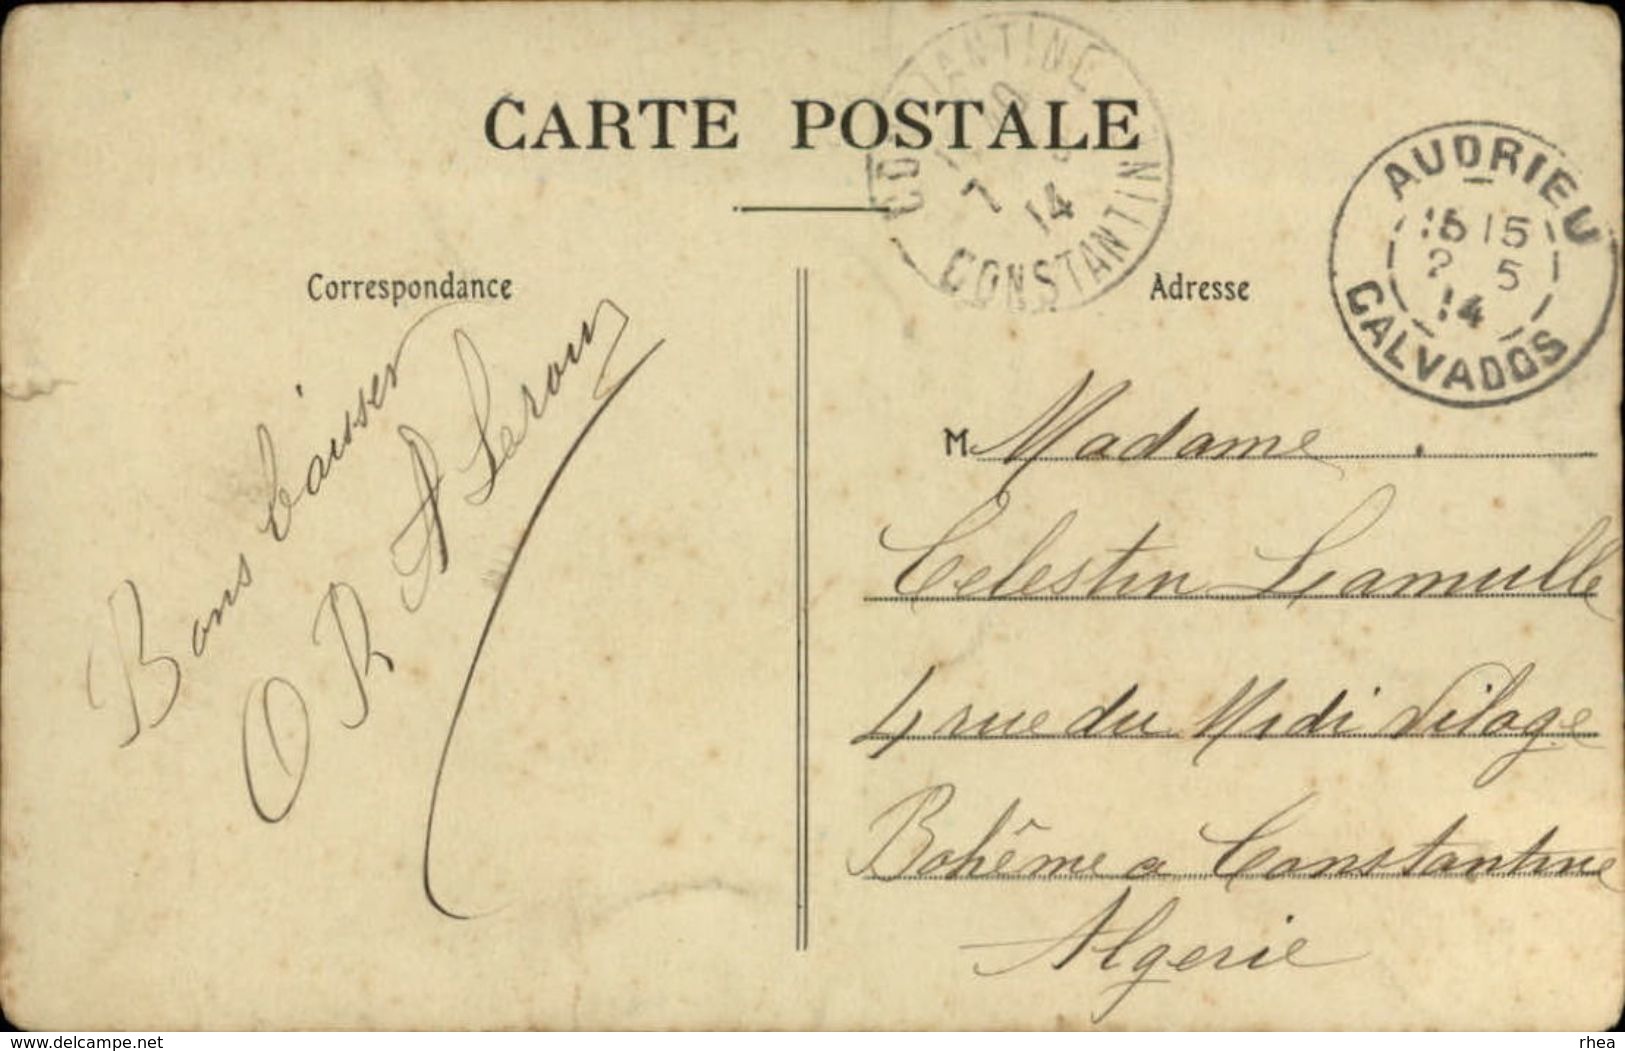 CARTE POSTALE
CONSTANTINE
7 14
CONSTANTINE
AUDRIEU
15 15
2 5
14
CALVADOS
Correspondance
Adresse
Bons baiser
O R A Leroux
M Madame
Celestin Lamulle
4 rue du Midi Vilage
Bohême a Constantine
Algerie
www.delcampe.net
rhea